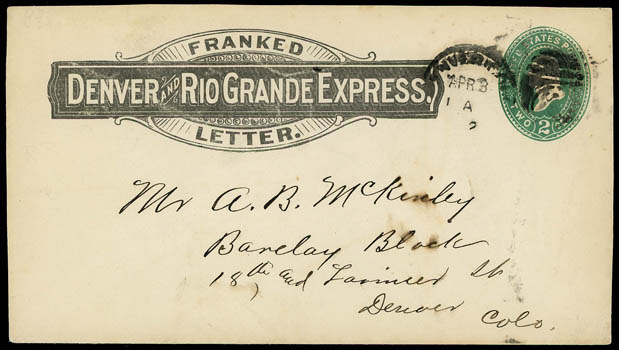 FRANKED
DENVER AND RIO GRANDE EXPRESS.
LETTER.
APR 3
1 A
STATES
TWO
2
Mr A. B. McKinley
Barclay Block
18th and Larimer St
Denver
Colo.